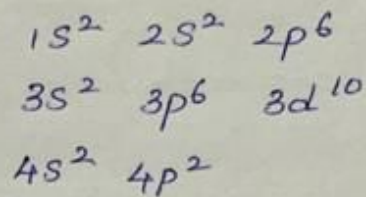 1s² 2s² 2p⁶
3s² 3p⁶ 3d¹⁰
4s² 4p²